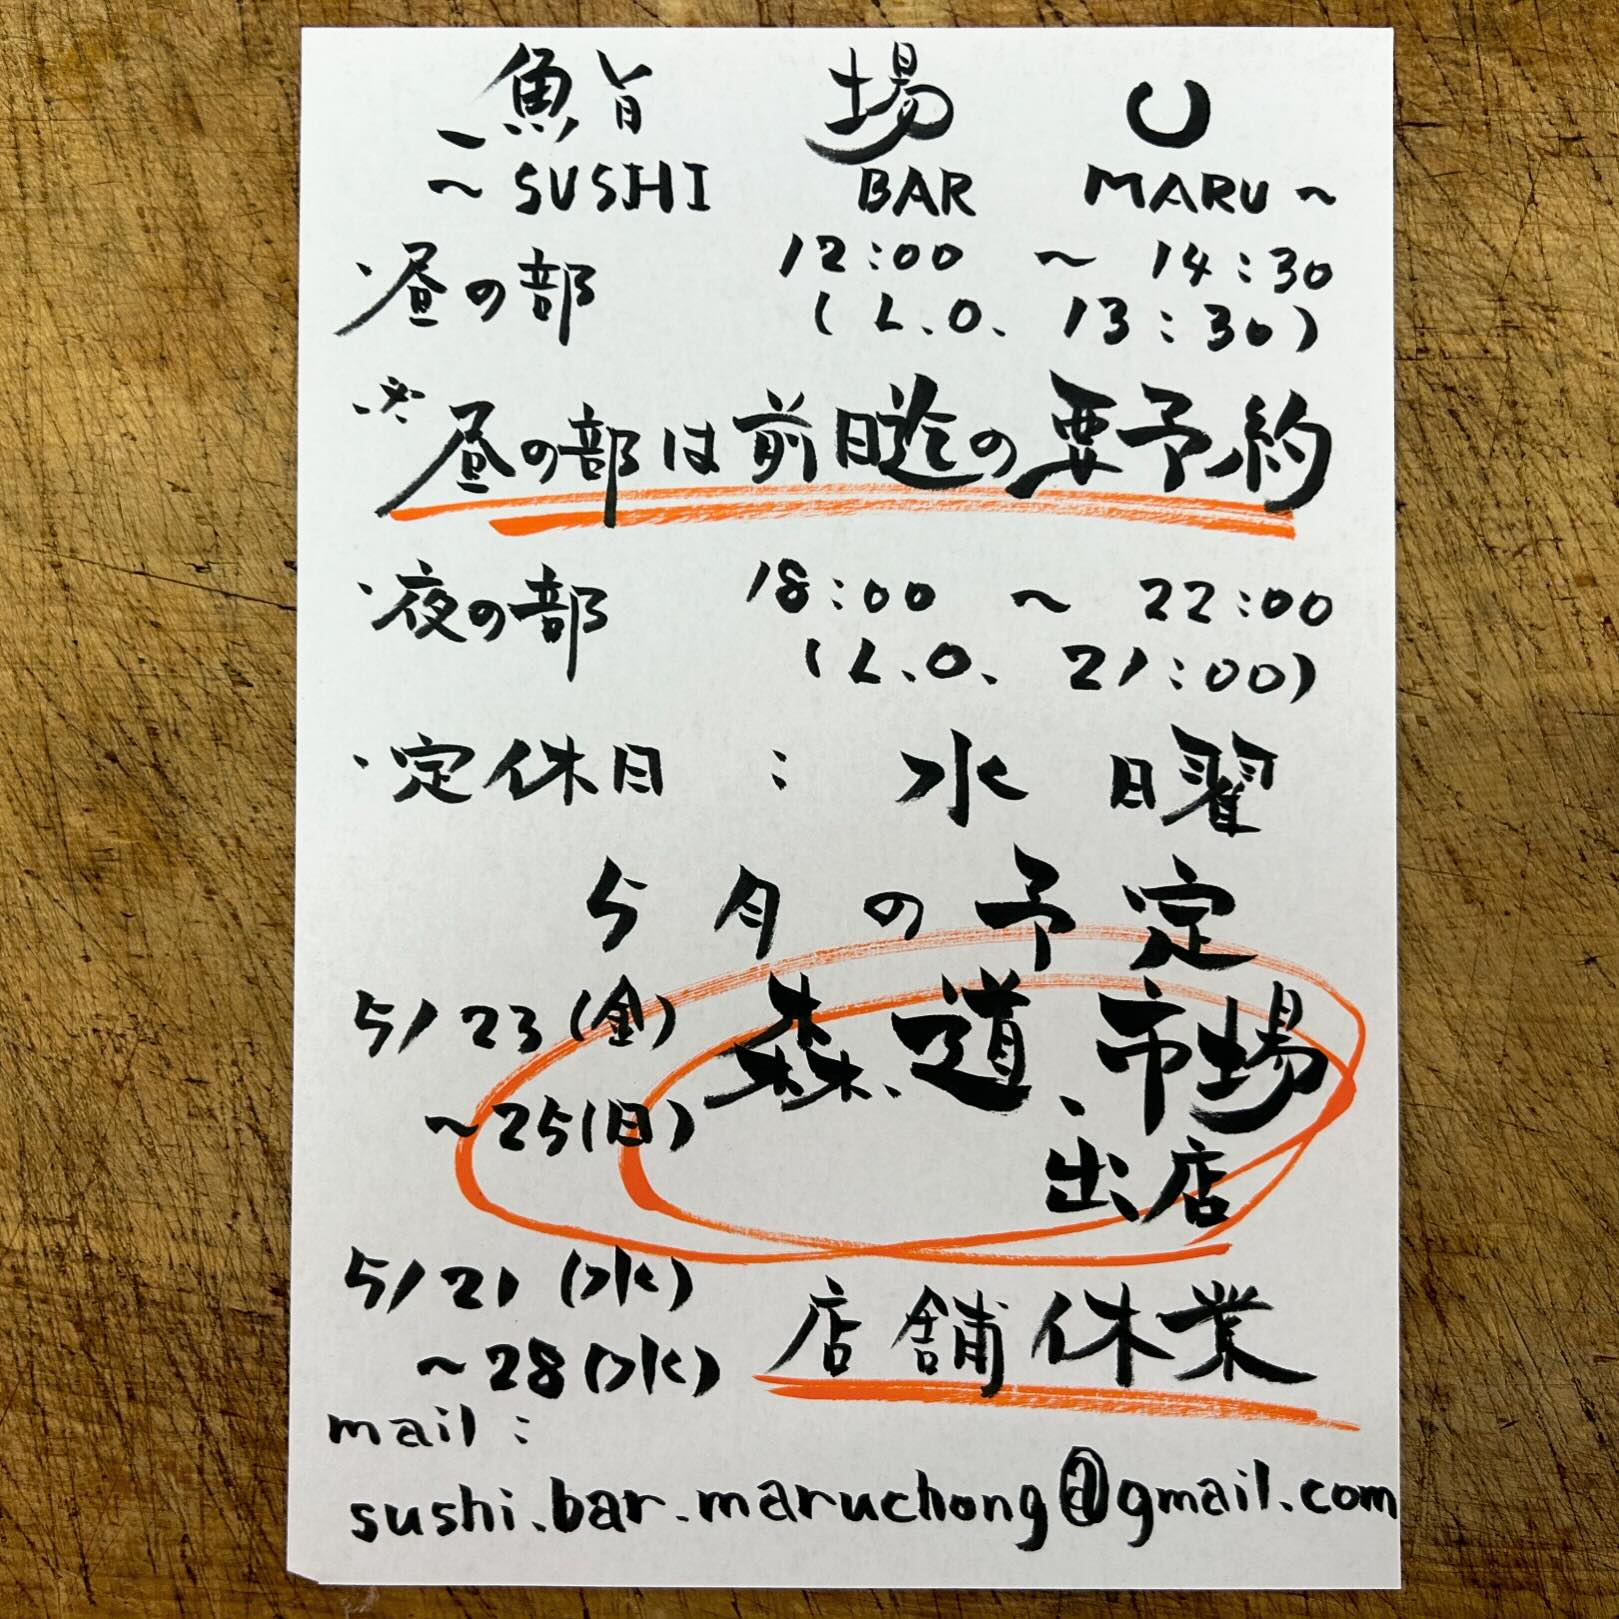 鮨 場 〇
～SUSHI BAR MARU～
・昼の部 12:00 ～ 14:30
(L.O. 13:30)
※昼の部は前日迄の要予約
・夜の部 18:00 ～ 22:00
(L.O. 21:00)
・定休日 : 水曜日
5月の予定
5/23(金) 森、道、市場
～25(日) 出店
5/21(水) 店舗休業
～28(水)
mail:
sushi.bar.maruchong@gmail.com